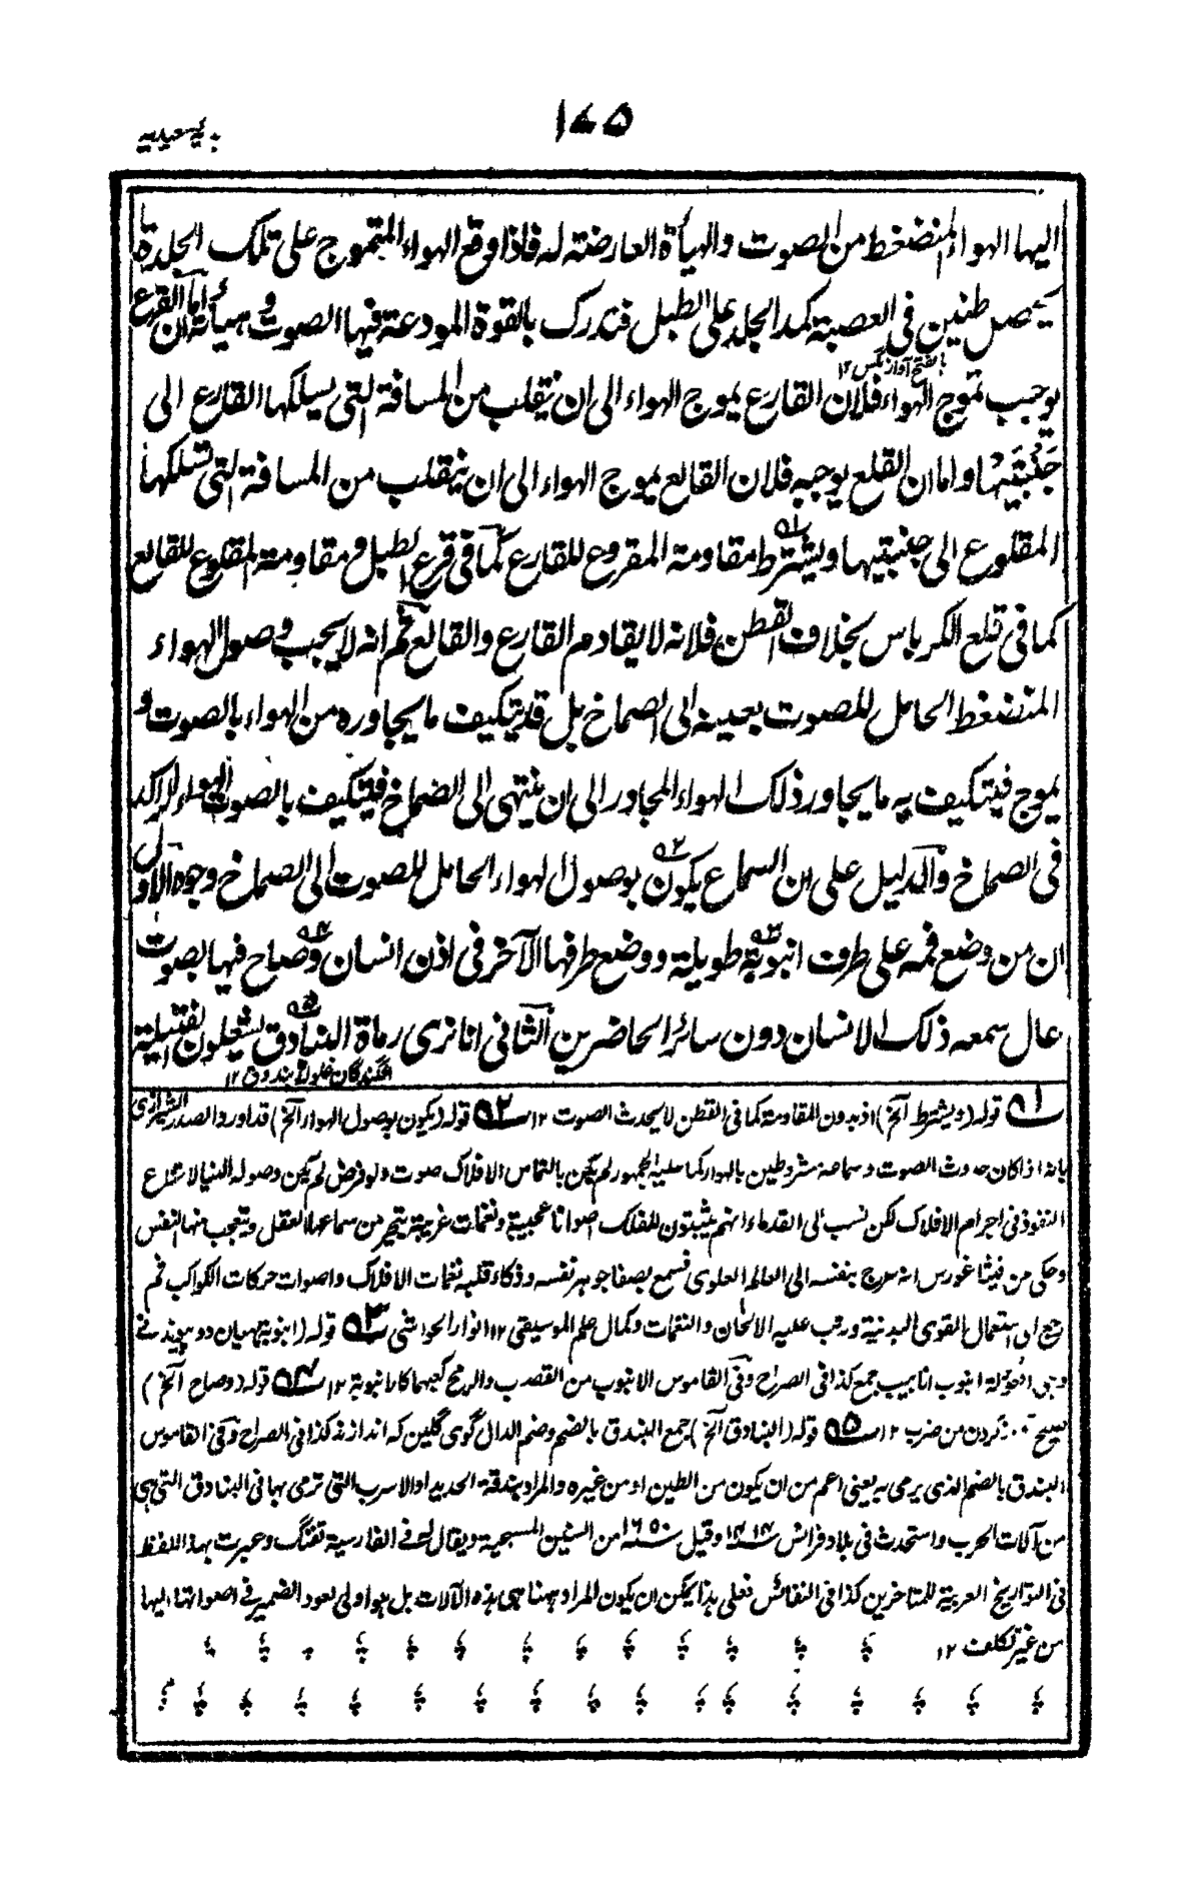 ١٧٥
يه سعيديه
اليها الهواء المنضغط من الصوت والهيأة العارضة له فاذا وقع الهواء المتموج على تلك الجلدة
يحصل طنين في العصبة كمد الجلد على الطبل فتدرك بالقوة المودعة فيها الصوت وهيأته اما ان القرع
بالفتح آواز مگس ١٢
يوجب تموج الهواء فلان القارع يموج الهواء الى ان ينقلب من المسافة التي يسلكها القارع الى
جَنْبَتَيْها واما ان القلع يوجبه فلان القالع يموج الهواء الى ان ينقلب من المسافة التي تسلكها
المقلوع الى جنبتيها ويشترط مقاومة المقروع للقارع كما في قرع الطبل ومقاومة المقلوع للقالع
كما في قلع الكرباس بخلاف القطن فلانه لا يقاوم القارع والقالع ثم انه لا يجب وصول الهواء
المنضغط الحامل للصوت بعينه الى الصماخ بل قد يتكيف ما يجاوره من الهواء بالصوت و
يموج فيتكيف به ما يجاور ذلك الهواء المجاور الى ان ينتهي الى الصماخ فيتكيف بالصوت الهواء الراكد
في الصماخ والدليل على ان السماع يكون بوصول الهواء الحامل للصوت الى الصماخ وجوه الاول
ان من وضع فمه على طرف انبوبة طويلة ووضع طرفها الآخر في اذن انسان وصاح فيها بصوت
عال سمعه ذلك الانسان دون سائر الحاضرين الثاني انا نرى رماة البنادق يشعلون الفتيلة
افگندگان غلوله بندوق ١٢
ـه١ قوله (ويشترط آلخ) اذ بدون المقاومة كما في القطن لا يحدث الصوت ١٢ ـه٢ قوله (يكون بوصول الهواء آلخ) قد اورد الصدر الشيرازي
بانه اذا كان حدوث الصوت وسماعه مشروطين بالهواء كما عليه الجمهور لم يكن بالتماس الافلاك صوت ولو فرض لم يكن وصوله الينا لامتناع
النفوذ في اجرام الافلاك لكن نسب الى القدماء انهم يثبتون للفلك اصواتا عجيبة ونغمات غريبة يتحير من سماعها العقل وتعجب منها النفس
وحكى من فيثاغورس انه عرج بنفسه الى العالم العلوي فسمع بصفا جوهر نفسه وذكاء قلبه نغمات الافلاك واصوات حركات الكواكب ثم
رجع الى استعمال القوى البدنية ورتب عليه الالحان والنغمات وكمال علم الموسيقى ١٢ انوار الحواشي ـه٣ قوله (انبوبة) ميان دو پيوند نے
وهي افعولة انبوب انابيب جمع كذا في الصراح وفي القاموس الانبوب من القصب والرمح كعبهما كالانبوبة ١٢ ـه٤ قوله (وصاح آلخ)
كردن من ضرب ١٢ ـه٥ قوله (البنادق آلخ) جمع البندق بالضم وضم الدال گوى گلين كه اندازند كذا في الصراح وفي القاموس
البندق بالضم الذي يرمى به يعني اعم من ان يكون من الطين او من غيره والمراد بندقة الحديد او الاسرب التي ترمى بها في البنادق التي هي
من آلات الحرب واستحدث في بلاد فرانس وقيل سنه ١٦٥٠ من السنين المسيحية ويقال له في الفارسية تفنگ وعبرت بهذا اللفظ
في التواريخ العربية للمتاخرين كذا في النفائس فعلى هذا يمكن ان يكون المراد ههنا هي هذه الآلات بل هو اولى لعود الضمير في اصواتها اليها
من غير تكلف ١٢